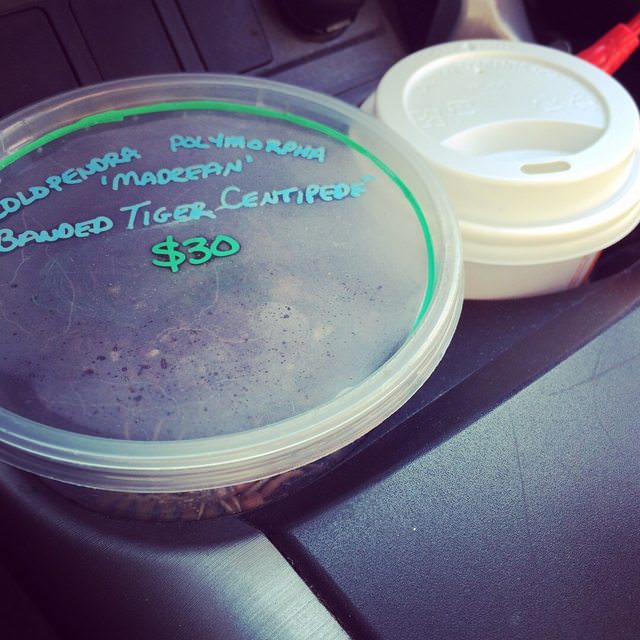 OLOPENDRA POLYMORPHA
'MADREAN'
BANDED TIGER CENTIPEDE"
$30